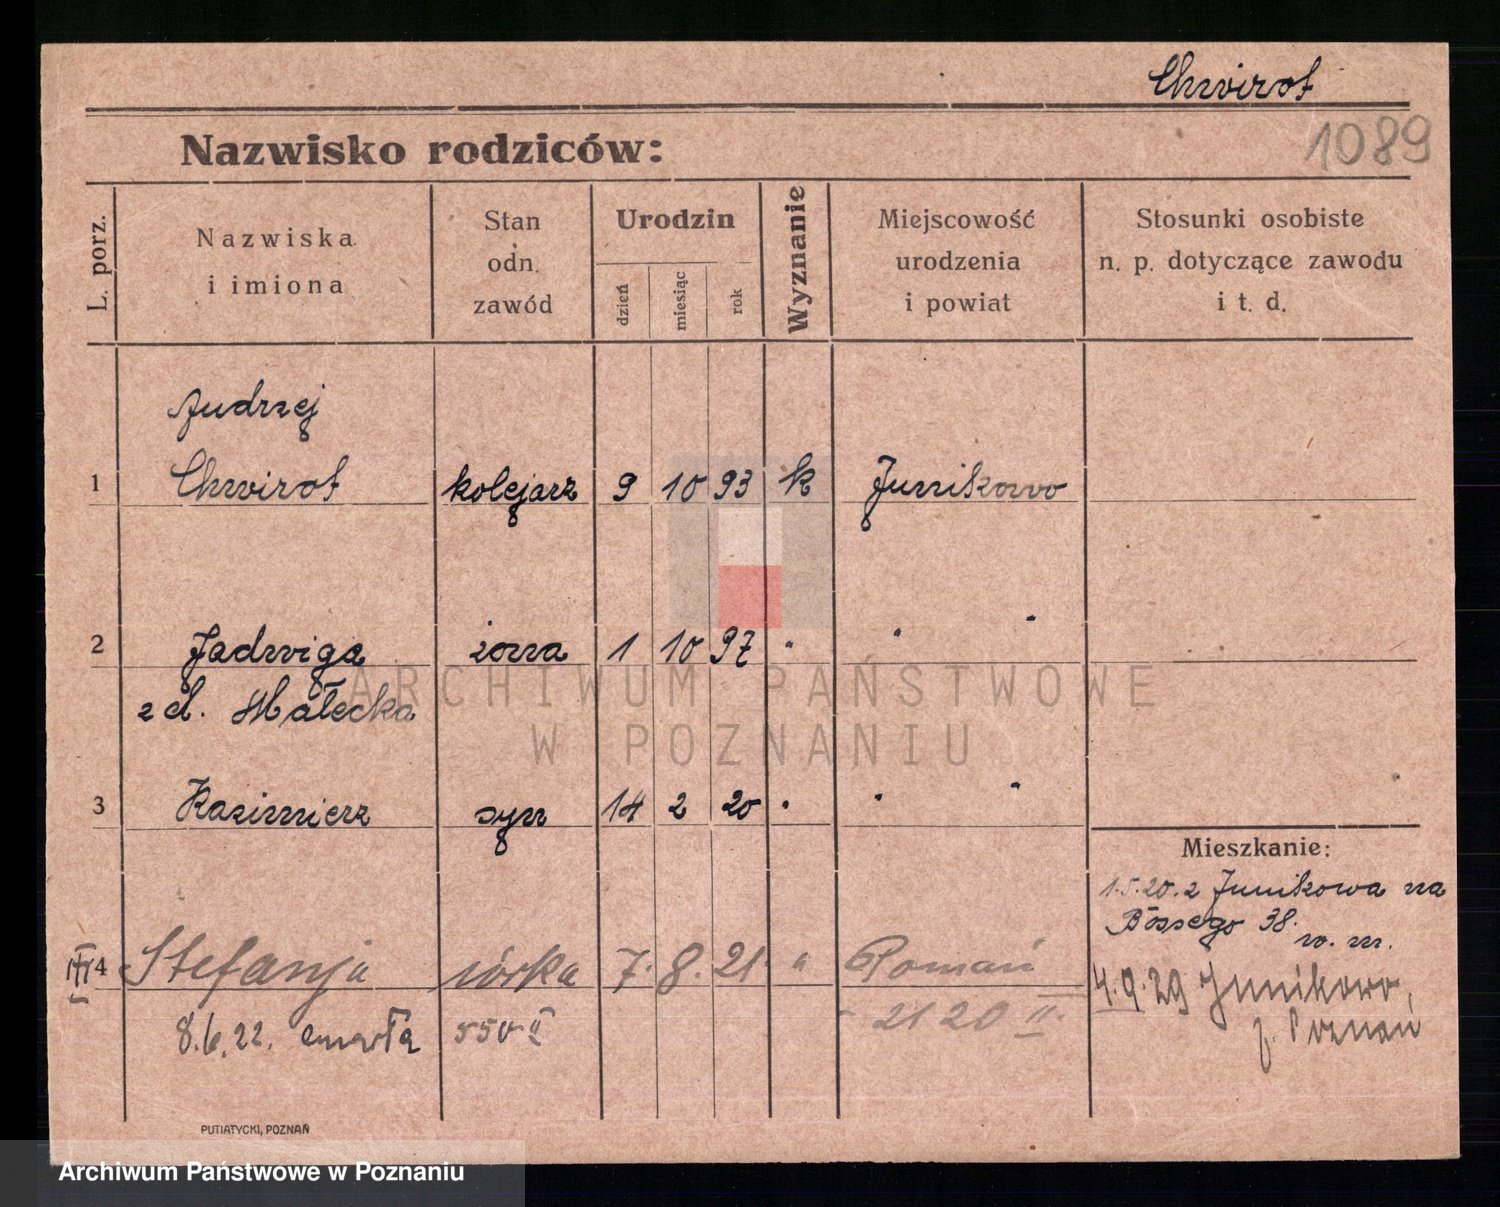 Chwirot
1089
Nazwisko rodziców:
L. porz.
Nazwiska
i imiona
Stan
odn.
zawód
Urodzin
dzień
miesiąc
rok
Wyznanie
Miejscowość
urodzenia
i powiat
Stosunki osobiste
n. p. dotyczące zawodu
i t. d.
Andrzej
1 Chwirot kolejarz 9 10 93 k Junikowo
2 Jadwiga żona 1 10 97 " " "
z d. Małecka
3 Kazimierz syn 14 2 20 " " "
Mieszkanie:
1.5.20. z Junikowa na
Bossego 38.
w. m.
4 Stefanja córka 7. 8. 21. " Poznań
4.9.29 Junikowo,
8.6.22. zmarła 550 II 2120 II
p. Poznań
PUTIATYCKI, POZNAŃ
ARCHIWUM PAŃSTWOWE
W POZNANIU
Archiwum Państwowe w Poznaniu